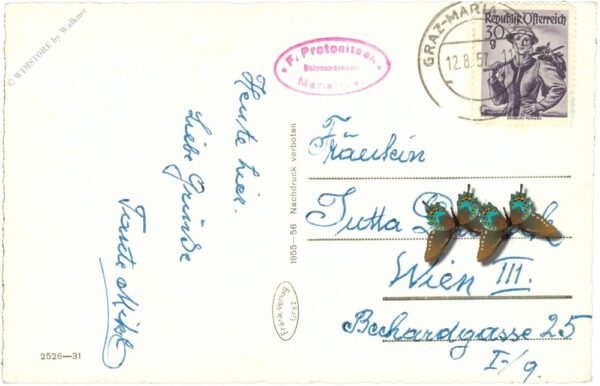 © WIMSTORE by Walkner
F. Protonitsch
GRAZ-MARIA
12.8.57
Republik Österreich
30 g
Heute hier.
Liebe Grüße
Tante
1955-56 Nachdruck verboten
Frank-Verlag
Graz
Fräulein
Jutta
Wien III.
Bechardgasse 25
I/9.
2526-31